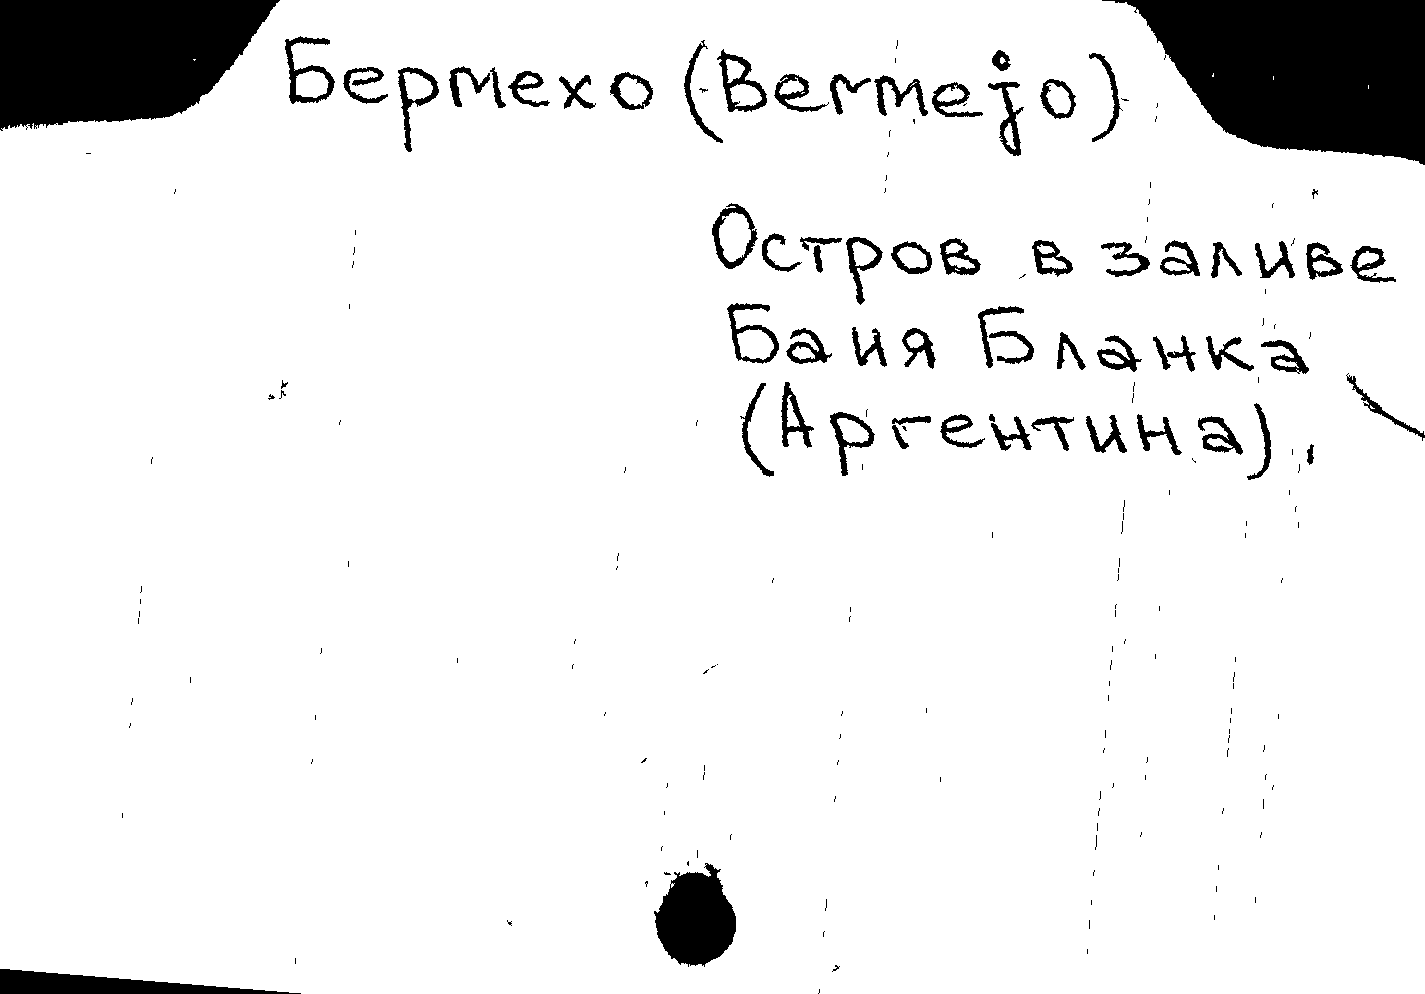 Бермехо (Bermejo)
Остров в заливе
Баия Бланка
(Аргентина).